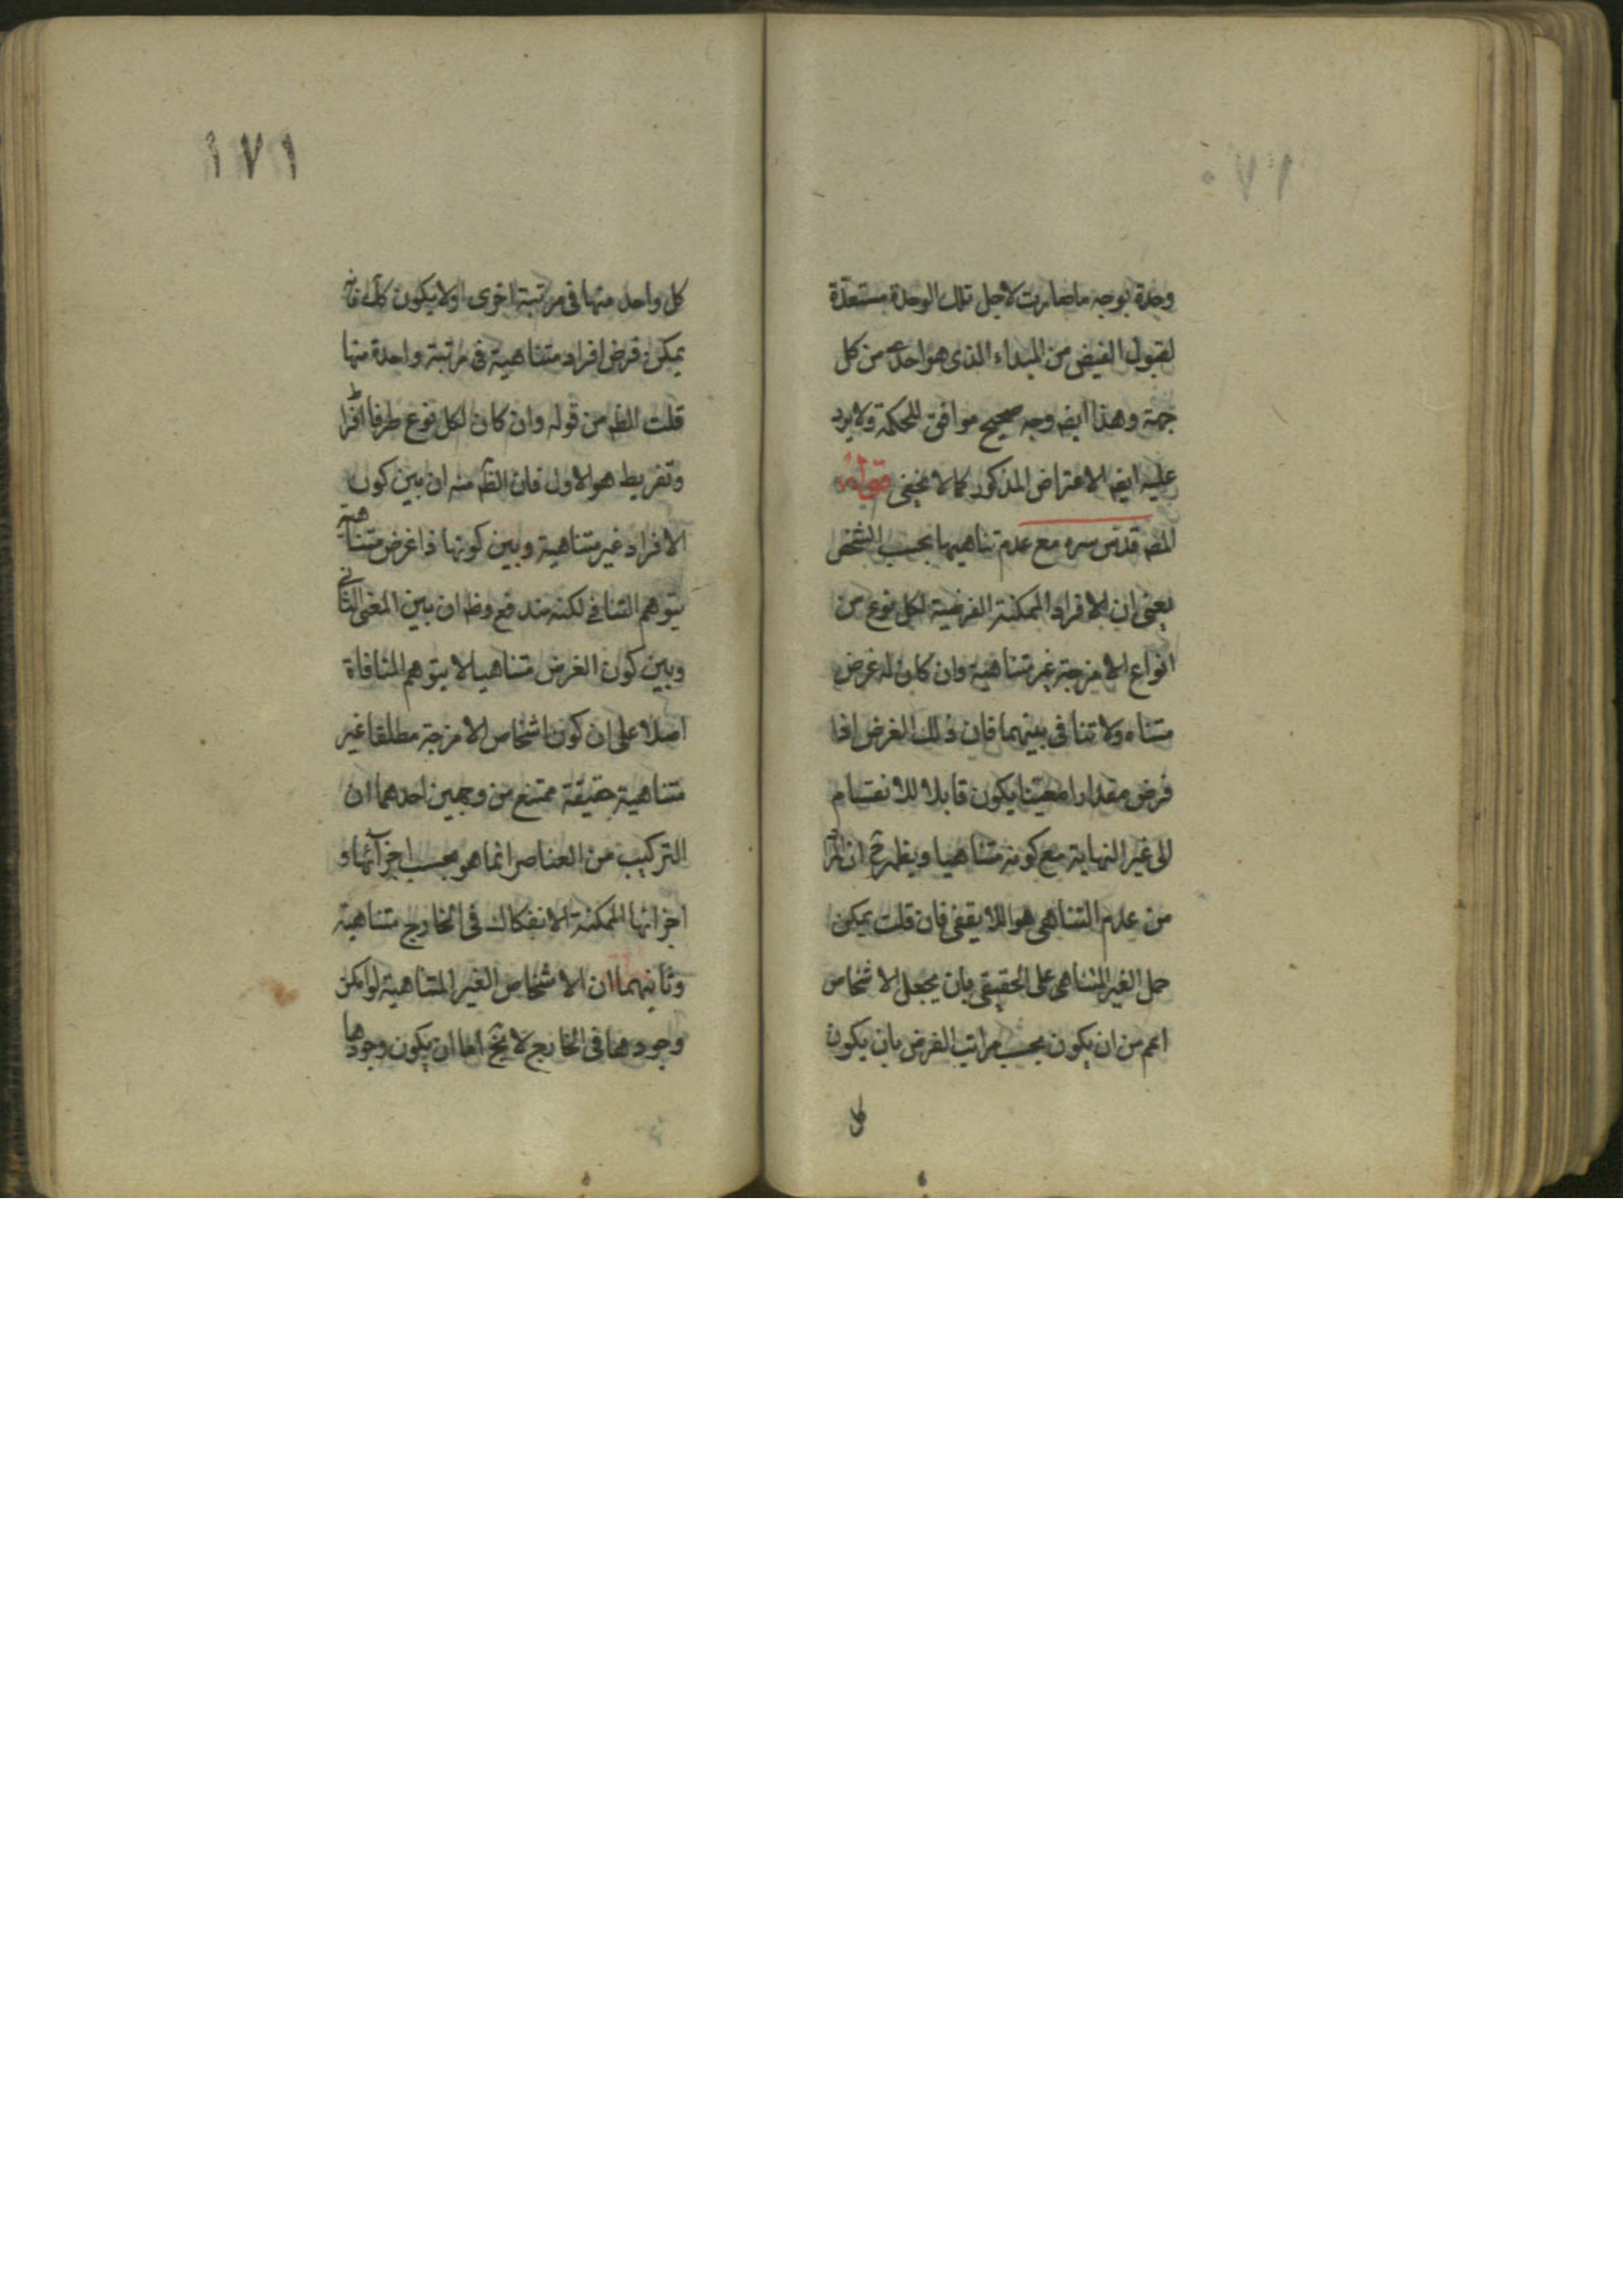 ١٧٠
وحدة بوجه ما صارت لاجل تلك الوحدة مستعدّة
لقبول الفيض من المبداء الذى هو احدى من كل
جهة وهذا ايضه وجه صحيح موافق للحكمة ولا يرد
عليه ايضه الاعتراض المذكور كما لا يخفى قوله
المصه قدس سره مع عدم تناهيها بحسب الشخص
يعنى ان الافراد الممكنة الفرضية لكل نوع من
انواع الامزجة غير متناهية وان كان له عرض
متناه ولا تنافى بينهما فان ذلك العرض اذا
فرض مقدارا معينا يكون قابلا للانقسام
الى غير النهاية مع كونه متناهيا ويظهر ح ان
من عدم التناهى هو اللايقفى فان قلت يمكن
حمل الغير المتناهى على الحقيقى بان يجعل الاشخاص
اعم من ان يكون بحسب مراتب الفرض بان يكون
كل
١٧١
كل واحد منها فى مرتبة اخرى اولا يكون كك فانه
يمكن فرض افراد متناهية فى مرتبة واحدة منها
قلت الظه من قوله وان كان لكل نوع طرفا افراط
وتفريط هو الاول فان الظه منه ان بين كون
الافراد غير متناهية وبين كونها ذا عرض متناهية
يتوهم التنافى لكنه مندفع وظه ان بين المعنى الثانى
وبين كون العرض متناهيا لا يتوهم المنافاة
اصلا على ان كون اشخاص الامزجة مطلقا غير
متناهية حقيقة ممتنع من وجهين احدهما ان
التركيب من العناصر انما هو بحسب اجزآئها و
اجزائها الممكنة الانفكاك فى الخارج متناهية
وثانيهما ان الاشخاص الغير المتناهية لو امكن
وجودها فى الخارج لا يخ اما ان يكون وجودها